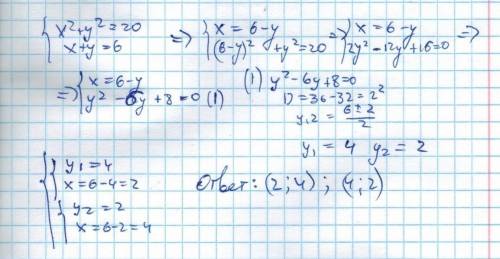 { x² + y² = 20
x + y = 6 => { x = 6 - y
(6-y)² + y² = 20 => { x = 6 - y
2y² - 12y + 16 = 0 =>
=> { x = 6 - y
y² - 6y + 8 = 0 (1)
(1) y² - 6y + 8 = 0
D = 36 - 32 = 2²
y₁,₂ = (6 ± 2)/2
y₁ = 4 y₂ = 2
{ { y₁ = 4
x = 6 - 4 = 2
{ y₂ = 2
x = 6 - 2 = 4
Ответ: (2; 4) ; (4; 2)